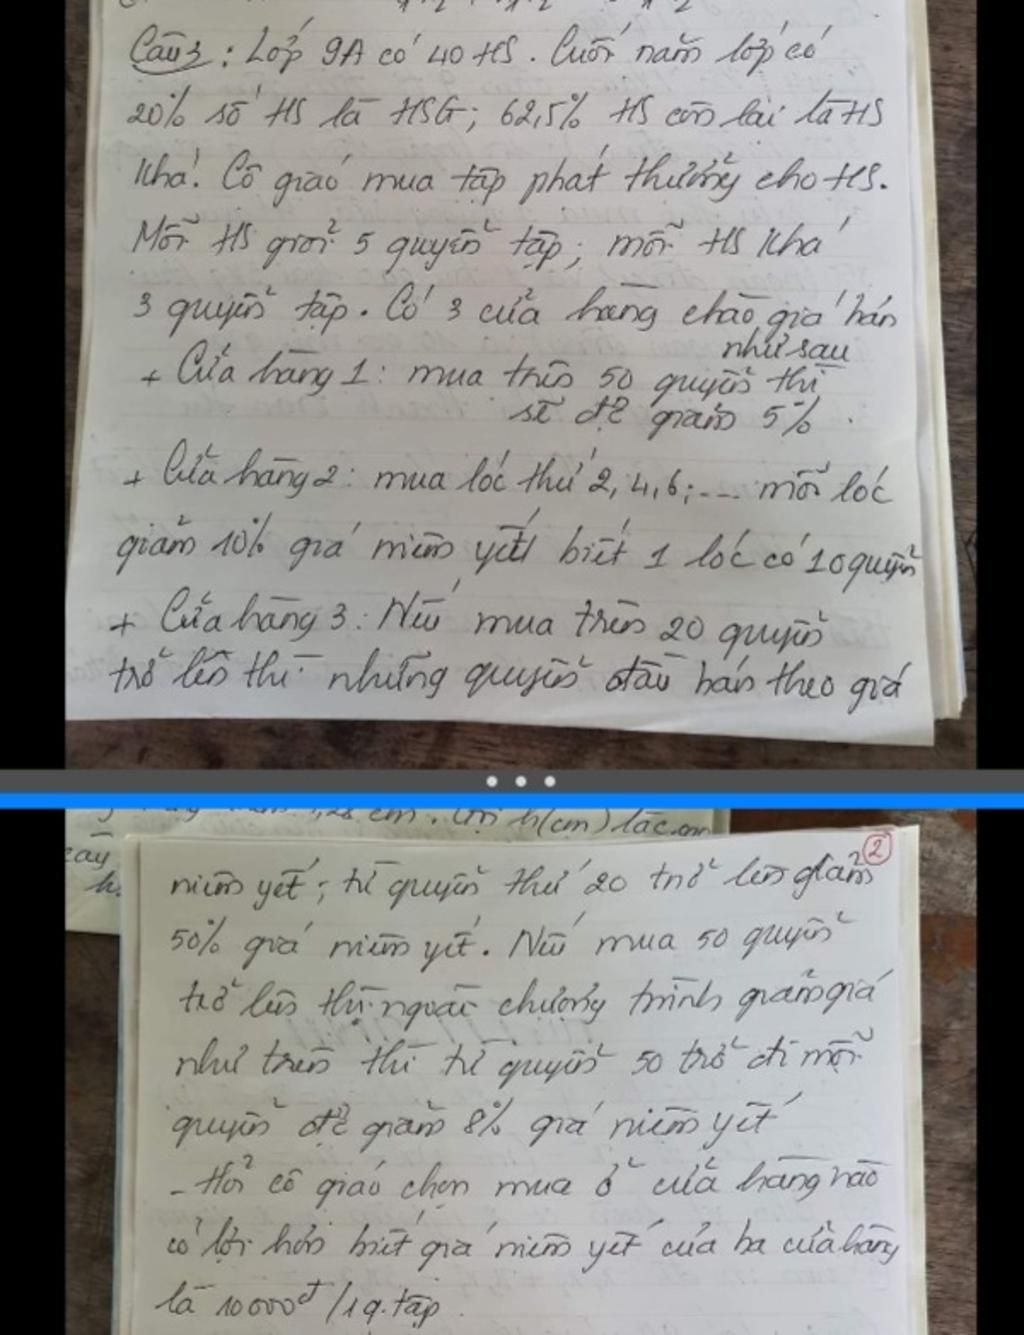 Câu 3 : Lớp 9A có 40 HS. Cuối năm lớp có
20% số HS là HSG; 62,5% HS còn lại là HS
khá. Cô giáo mua tập phát thưởng cho HS.
Mỗi HS giỏi 5 quyển tập; mỗi HS khá
3 quyển tập. Có 3 cửa hàng chào giá bán
như sau
+ Cửa hàng 1: mua trên 50 quyển thì
sẽ đc giảm 5%.
+ Cửa hàng 2: mua lốc thứ 2, 4, 6;... mỗi lốc
giảm 10% giá niêm yết biết 1 lốc có 10 quyển
+ Cửa hàng 3: Nếu mua trên 20 quyển
trở lên thì những quyển đầu bán theo giá
28 cm. h(cm) là
cây
h.
2
niêm yết; từ quyển thứ 20 trở lên giảm
50% giá niêm yết. Nếu mua 50 quyển
trở lên thì ngoài chương trình giảm giá
như trên thì từ quyển 50 trở đi mỗi
quyển đc giảm 8% giá niêm yết
- Hỏi cô giáo chọn mua ở cửa hàng nào
có lợi hơn biết giá niêm yết của ba cửa hàng
là 10000đ/1q.tập